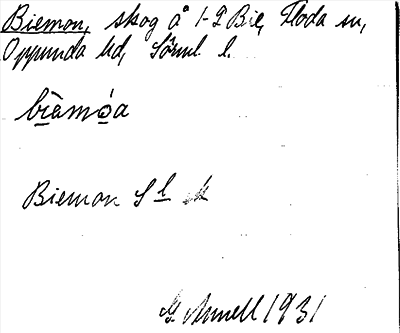 Biemon, skog å 1-2 Bie, Floda sn,
Oppunda hd, Sörml l.
bi̲amo̲a
Biemon S l
G Annell 1931